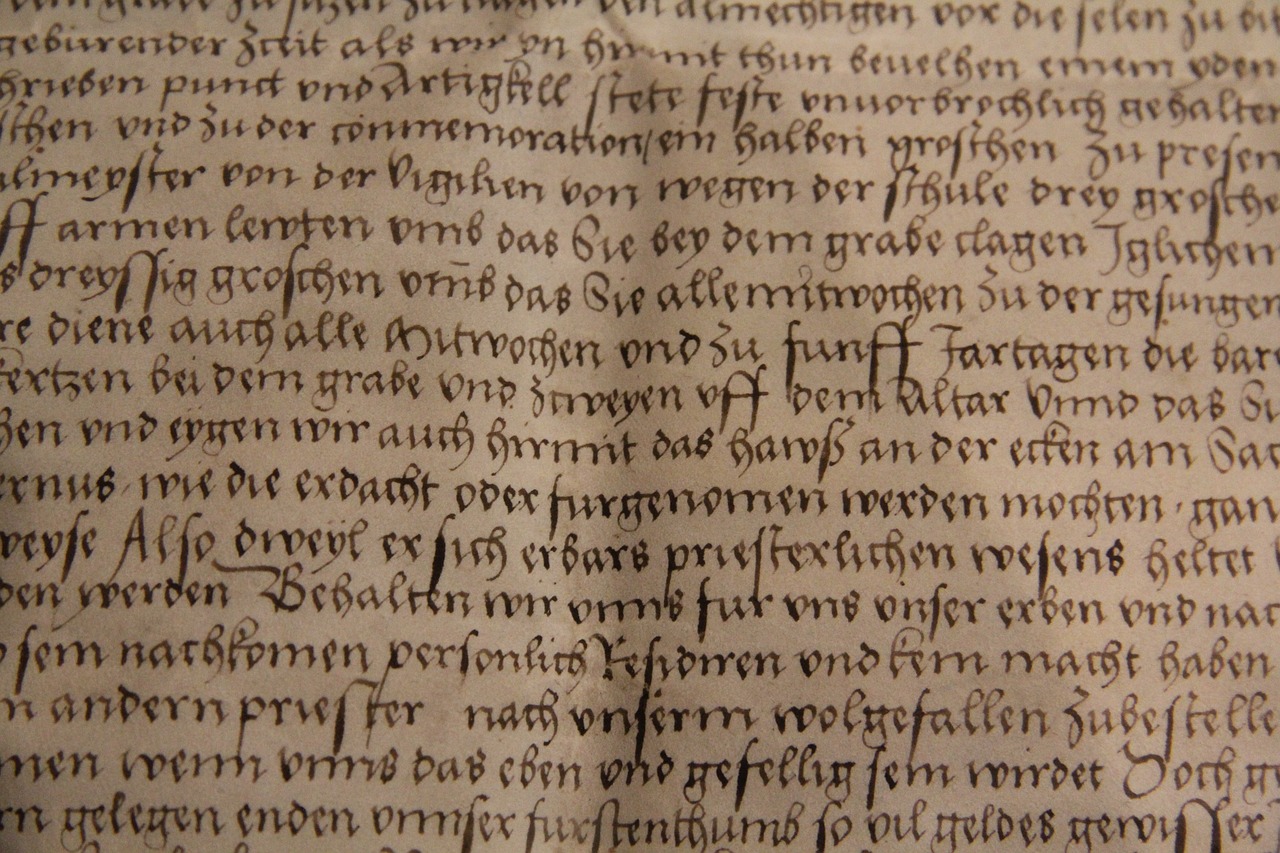 grabe zu sitzen zu den almechtigen vor die selen zu
geburender zceit als wir yn hirmit thun beuelhen einem yden
hrieben punct vnd Artigkell stete feste vnuorbrochlich gehalten
schen vnd zu der conmemoration / ein halben groschen zu presen
lmeyster von der Vigilien von wegen der schule drey grosche
ff armen lewten vmb das Sie bey dem grabe clagen Iglichen
s dreyssig groschen vm̄b das Sie alle mitwochen zu der gesungen
re diene auch alle Mitwochen vnd zu funff Jartagen die bar
kertzen bei dem grabe vnd zcweyen vff dem Altar Vnnd das Si
hen vnd eygen wir auch hirmit das hawß an der ecken am Sac
ernus wie die erdacht oder furgenomen werden mochten · gan
weyse Also dweyl er sich erbars priesterlichen wesens heltet
den werden Behalten wir vnns fur vns vnser erben vnd nac
sein nachkomen personlich Residiren vnd kein macht haben
n andern priester nach vnserm wolgefallen zubestelle
men wenn vnns das eben vnd gefellig sein wirdet Doch ge
rn gelegen enden vnnser furstenthumb so vil geldes gewisser